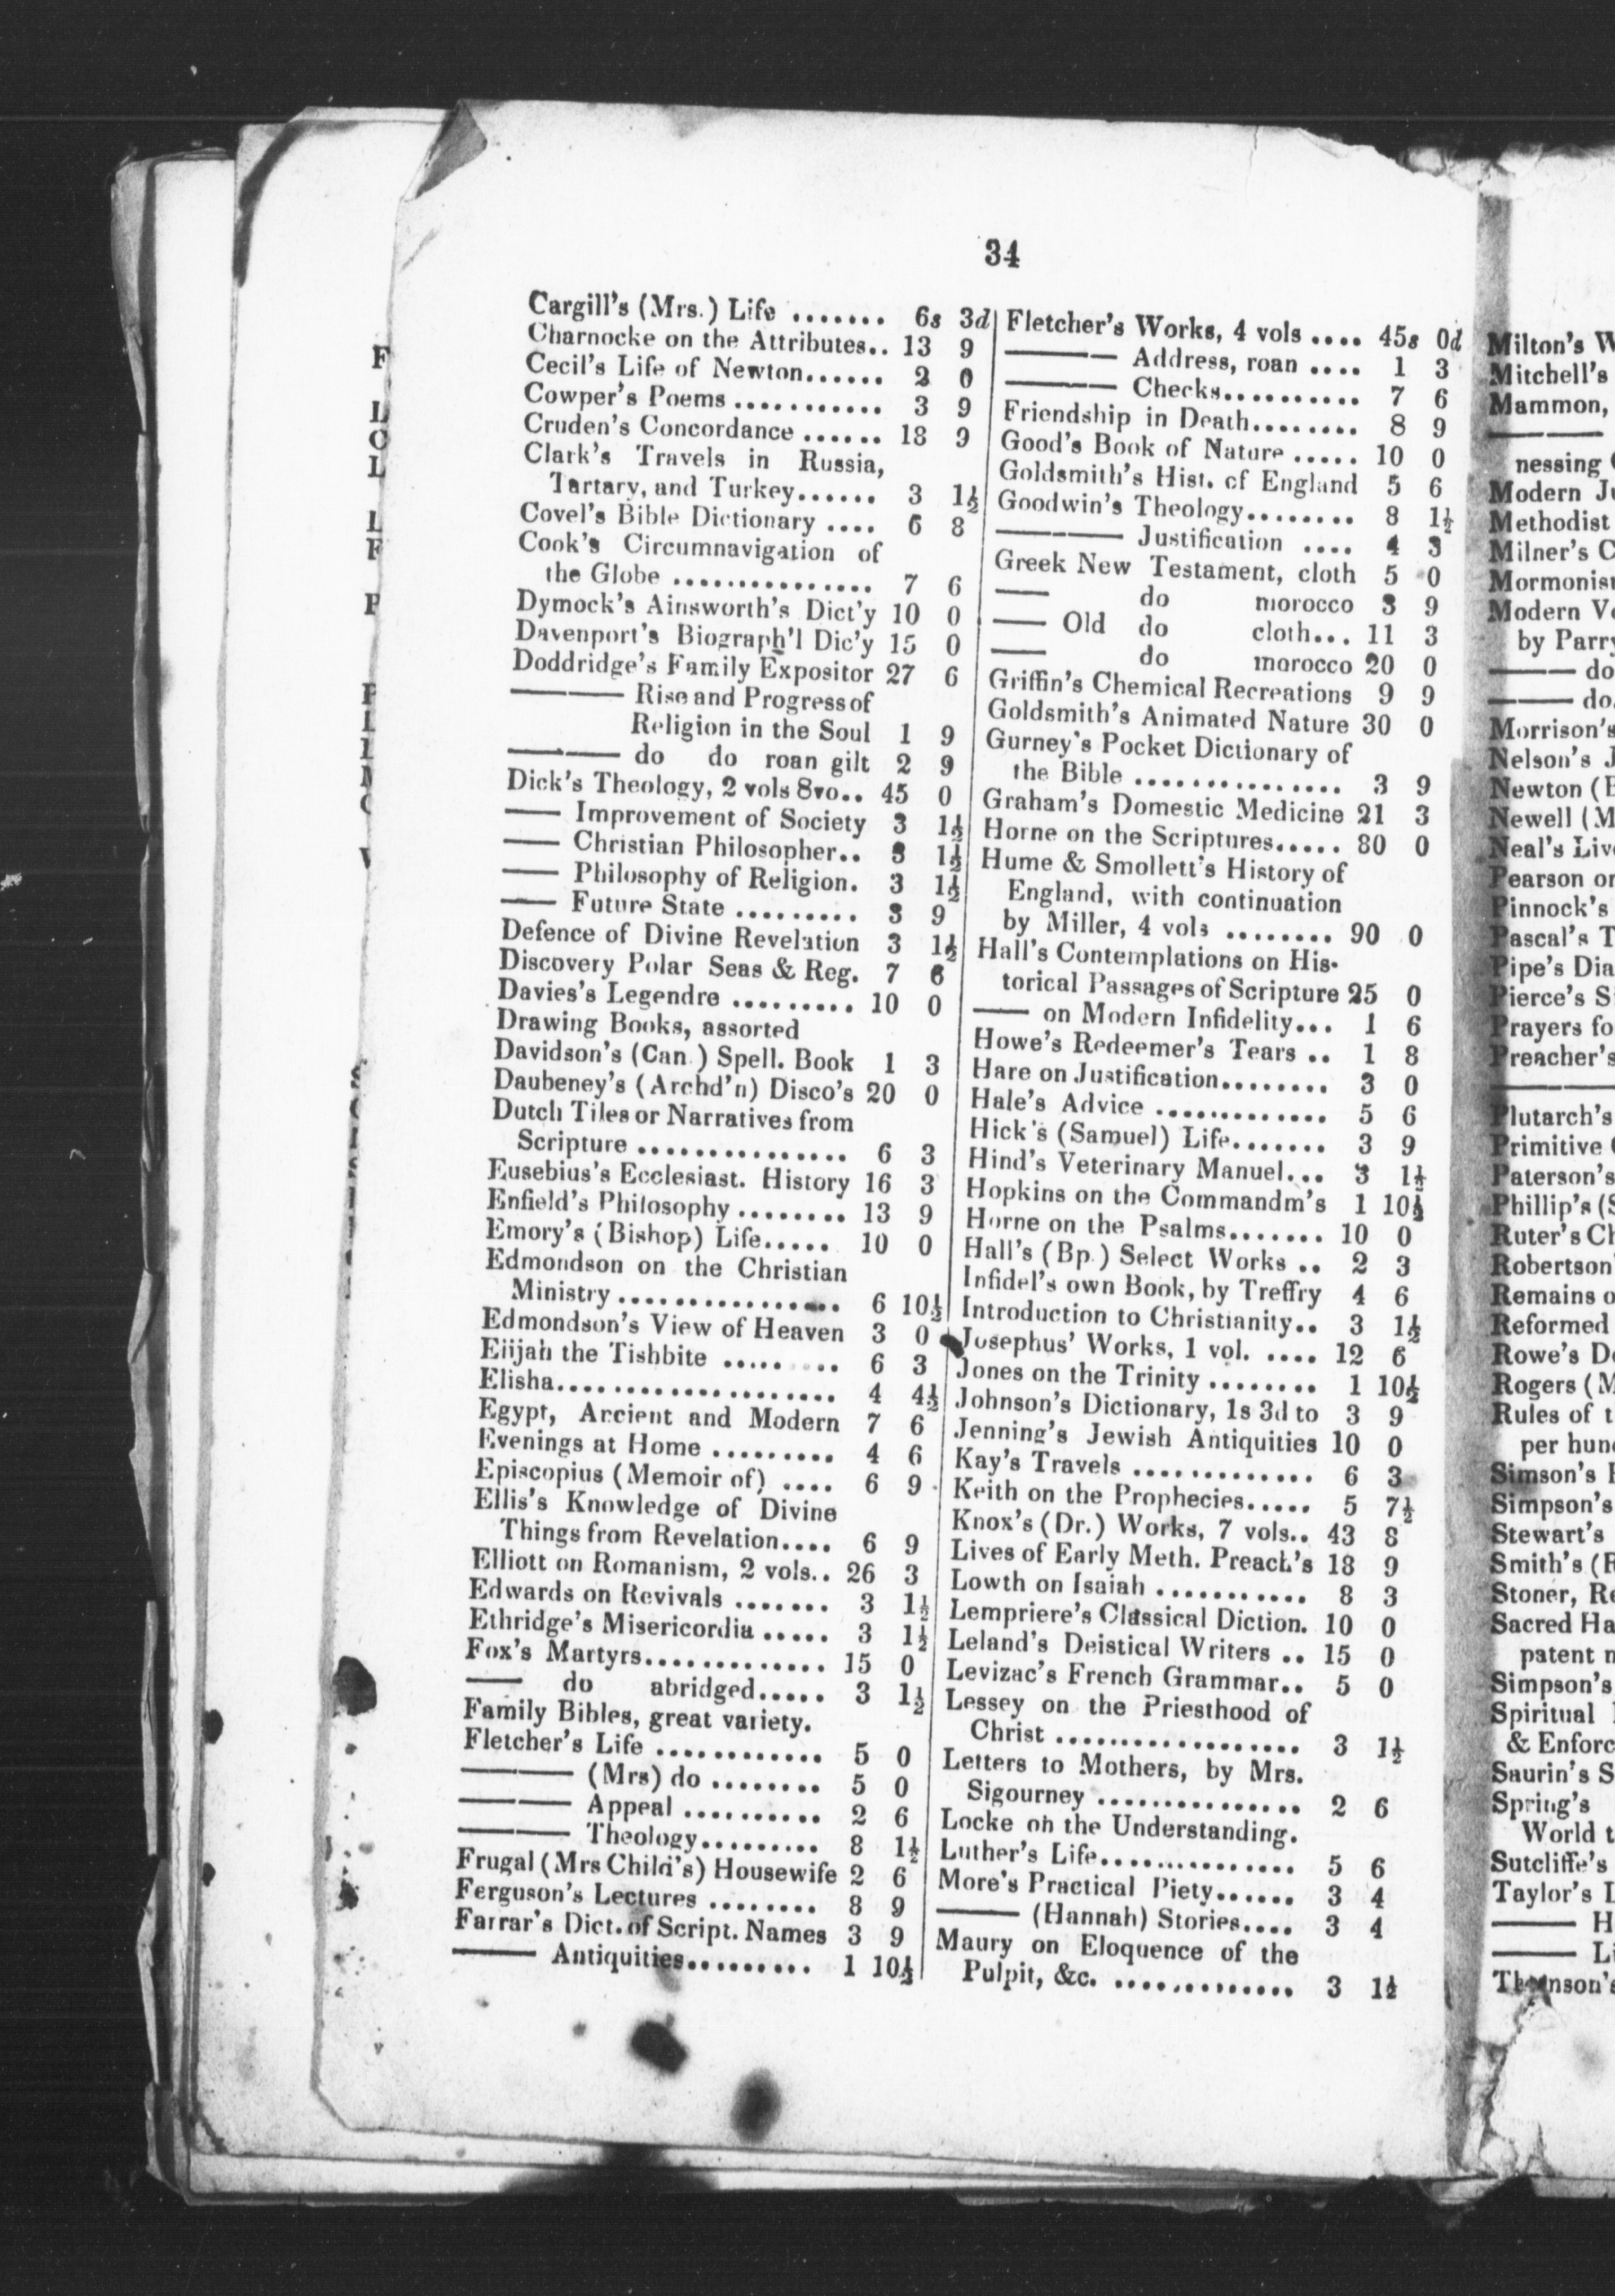 34
Cargill's (Mrs.) Life ....... 6s 3d
Charnocke on the Attributes.. 13 9
Cecil's Life of Newton...... 2 0
Cowper's Poems ........... 3 9
Cruden's Concordance ...... 18 9
Clark's Travels in Russia,
Tartary, and Turkey...... 3 1½
Covel's Bible Dictionary .... 6 8
Cook's Circumnavigation of
the Globe ............... 7 6
Dymock's Ainsworth's Dict'y 10 0
Davenport's Biograph'l Dic'y 15 0
Doddridge's Family Expositor 27 6
——— Rise and Progress of
Religion in the Soul 1 9
——— do do roan gilt 2 9
Dick's Theology, 2 vols 8vo.. 45 0
—— Improvement of Society 3 1½
—— Christian Philosopher.. 3 1½
—— Philosophy of Religion. 3 1½
—— Future State ......... 3 9
Defence of Divine Revelation 3 1½
Discovery Polar Seas & Reg. 7 6
Davies's Legendre ......... 10 0
Drawing Books, assorted
Davidson's (Can.) Spell. Book 1 3
Daubeney's (Archd'n) Disco's 20 0
Dutch Tiles or Narratives from
Scripture ............... 6 3
Eusebius's Ecclesiast. History 16 3
Enfield's Philosophy ........ 13 9
Emory's (Bishop) Life..... 10 0
Edmondson on the Christian
Ministry ................ 6 10½
Edmondson's View of Heaven 3 0
Elijah the Tishbite ........ 6 3
Elisha.................... 4 4½
Egypt, Ancient and Modern 7 6
Evenings at Home ......... 4 6
Episcopius (Memoir of) .... 6 9
Ellis's Knowledge of Divine
Things from Revelation.... 6 9
Elliott on Romanism, 2 vols.. 26 3
Edwards on Revivals ....... 3 1½
Ethridge's Misericordia ..... 3 1½
Fox's Martyrs............. 15 0
—— do abridged..... 3 1½
Family Bibles, great variety.
Fletcher's Life ............ 5 0
——— (Mrs) do ........ 5 0
——— Appeal .......... 2 6
——— Theology......... 8 1½
Frugal (Mrs Child's) Housewife 2 6
Ferguson's Lectures ........ 8 9
Farrar's Dict. of Script. Names 3 9
——— Antiquities......... 1 10½
Fletcher's Works, 4 vols .... 45s 0d
——— Address, roan .... 1 3
——— Checks.......... 7 6
Friendship in Death........ 8 9
Good's Book of Nature ..... 10 0
Goldsmith's Hist. of England 5 6
Goodwin's Theology........ 8 1½
——— Justification .... 4 3
Greek New Testament, cloth 5 0
—— do morocco 3 9
—— Old do cloth... 11 3
—— do morocco 20 0
Griffin's Chemical Recreations 9 9
Goldsmith's Animated Nature 30 0
Gurney's Pocket Dictionary of
the Bible ................ 3 9
Graham's Domestic Medicine 21 3
Horne on the Scriptures..... 80 0
Hume & Smollett's History of
England, with continuation
by Miller, 4 vols ........ 90 0
Hall's Contemplations on His-
torical Passages of Scripture 25 0
—— on Modern Infidelity... 1 6
Howe's Redeemer's Tears .. 1 8
Hare on Justification........ 3 0
Hale's Advice ............. 5 6
Hick's (Samuel) Life....... 3 9
Hind's Veterinary Manuel... 3 1½
Hopkins on the Commandm's 1 10½
Horne on the Psalms....... 10 0
Hall's (Bp.) Select Works .. 2 3
Infidel's own Book, by Treffry 4 6
Introduction to Christianity.. 3 1½
Josephus' Works, 1 vol. .... 12 6
Jones on the Trinity ........ 1 10½
Johnson's Dictionary, 1s 3d to 3 9
Jenning's Jewish Antiquities 10 0
Kay's Travels ............. 6 3
Keith on the Prophecies..... 5 7½
Knox's (Dr.) Works, 7 vols.. 43 8
Lives of Early Meth. Preach's 18 9
Lowth on Isaiah ........... 8 3
Lempriere's Classical Diction. 10 0
Leland's Deistical Writers .. 15 0
Levizac's French Grammar.. 5 0
Lessey on the Priesthood of
Christ .................. 3 1½
Letters to Mothers, by Mrs.
Sigourney ............... 2 6
Locke on the Understanding.
Luther's Life.............. 5 6
More's Practical Piety...... 3 4
——— (Hannah) Stories.... 3 4
Maury on Eloquence of the
Pulpit, &c. ............. 3 1½
Milton's W
Mitchell's
Mammon,
———
nessing
Modern Ju
Methodist
Milner's C
Mormonis
Modern Ve
by Parry
——— do
——— do.
Morrison's
Nelson's J
Newton (
Newell (M
Neal's Live
Pearson on
Pinnock's
Pascal's T
Pipe's Dia
Pierce's S
Prayers fo
Preacher's
———
Plutarch's
Primitive
Paterson's
Phillip's (S
Ruter's Ch
Robertson
Remains o
Reformed
Rowe's De
Rogers (M
Rules of t
per hun
Simson's
Simpson's
Stewart's
Smith's (R
Stoner, Re
Sacred Ha
patent n
Simpson's
Spiritual
& Enforc
Saurin's S
Spring's
World t
Sutcliffe's
Taylor's L
——— H
——— Li